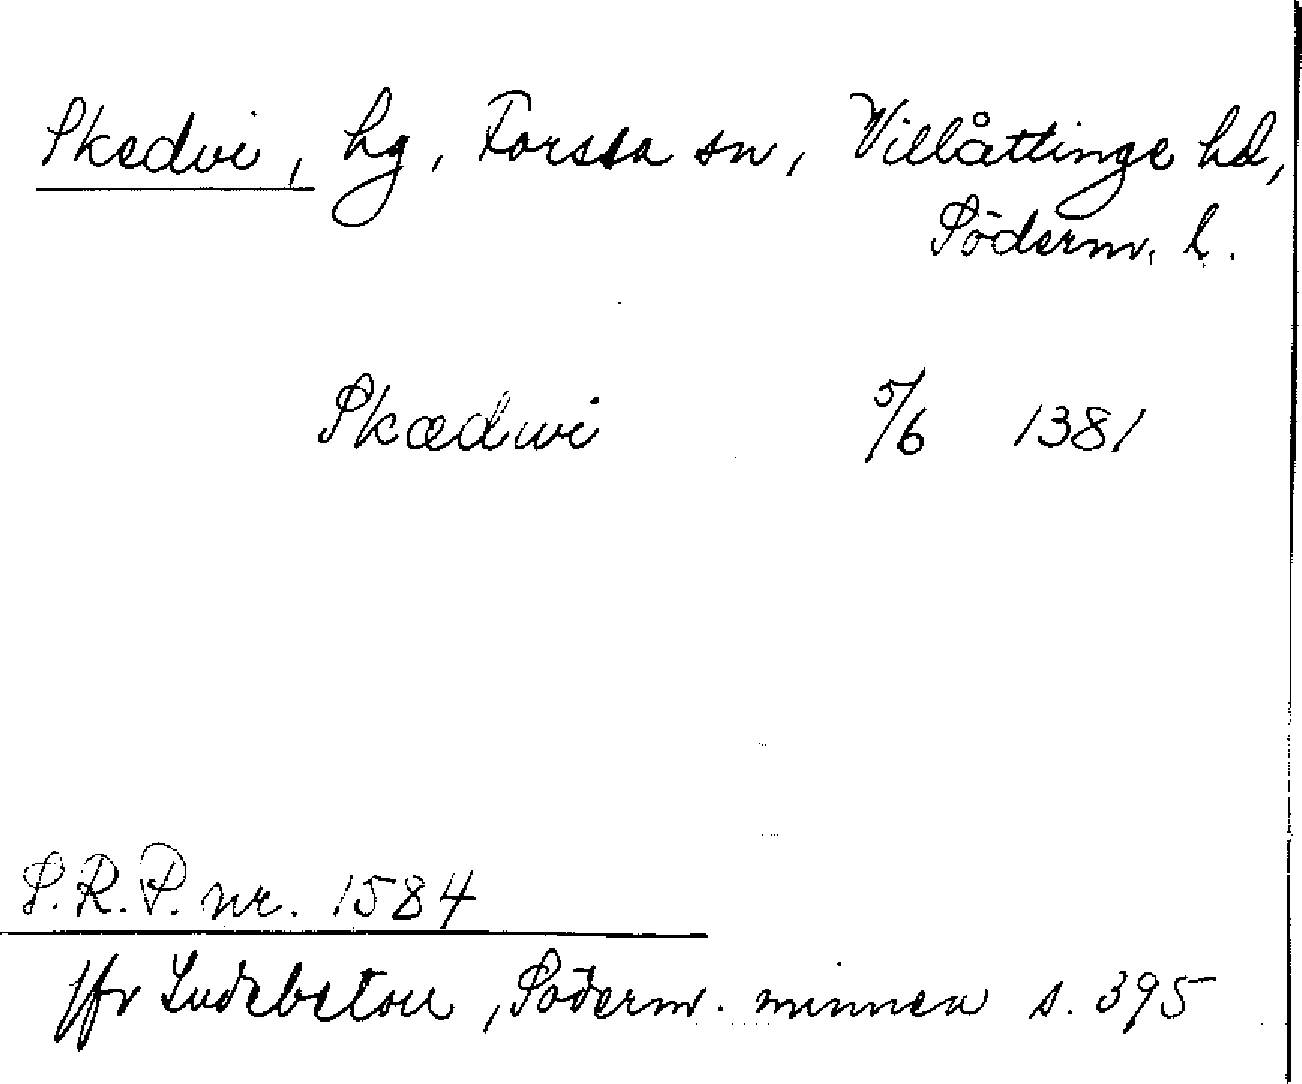 Skedvi, hg, Forssa sn, Villåttinge hd,
Söderm. l.
Skædwi 5/6 1381
S.R.P. nr. 1584
jfr Sudebeton, Söderm. minnen s. 395